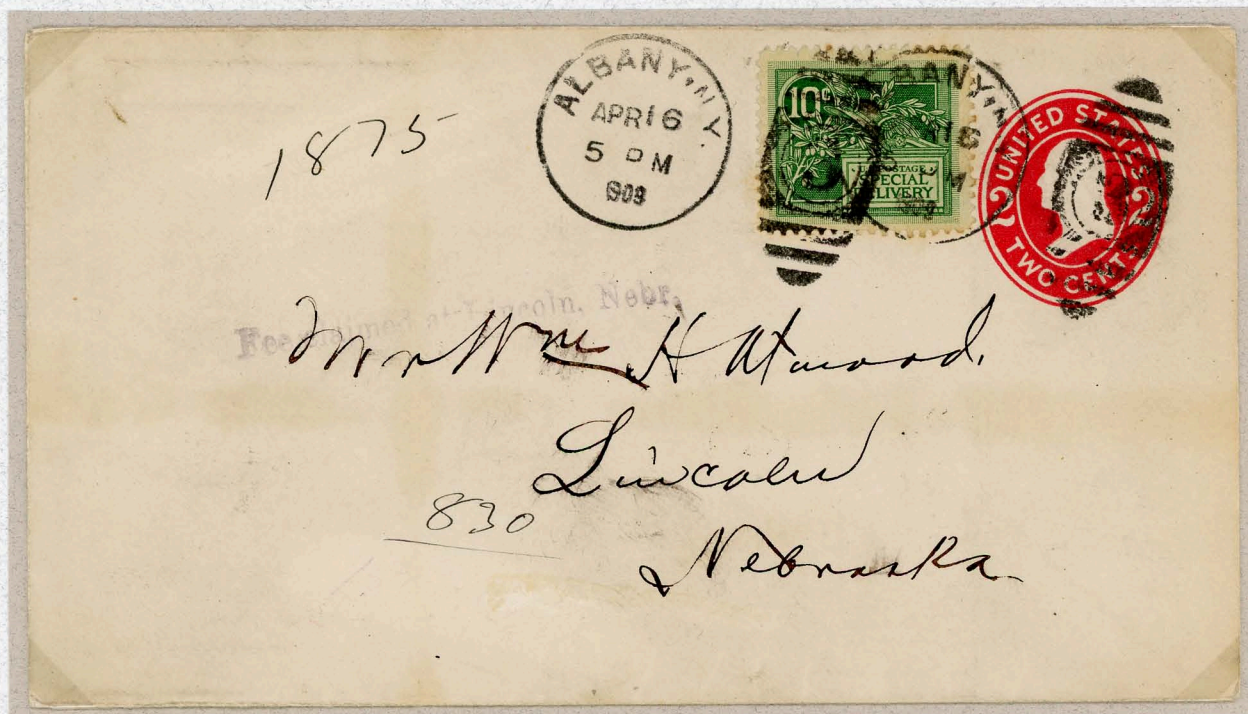 1875
ALBANY, N.Y.
APR 16
5 PM
1909
10c
U.S. POSTAGE
SPECIAL
DELIVERY
UNITED STATES
2 2
TWO CENTS
Fee claimed at Lincoln, Nebr.
Mr Wm H Atwood.
Lincoln
830
Nebraska